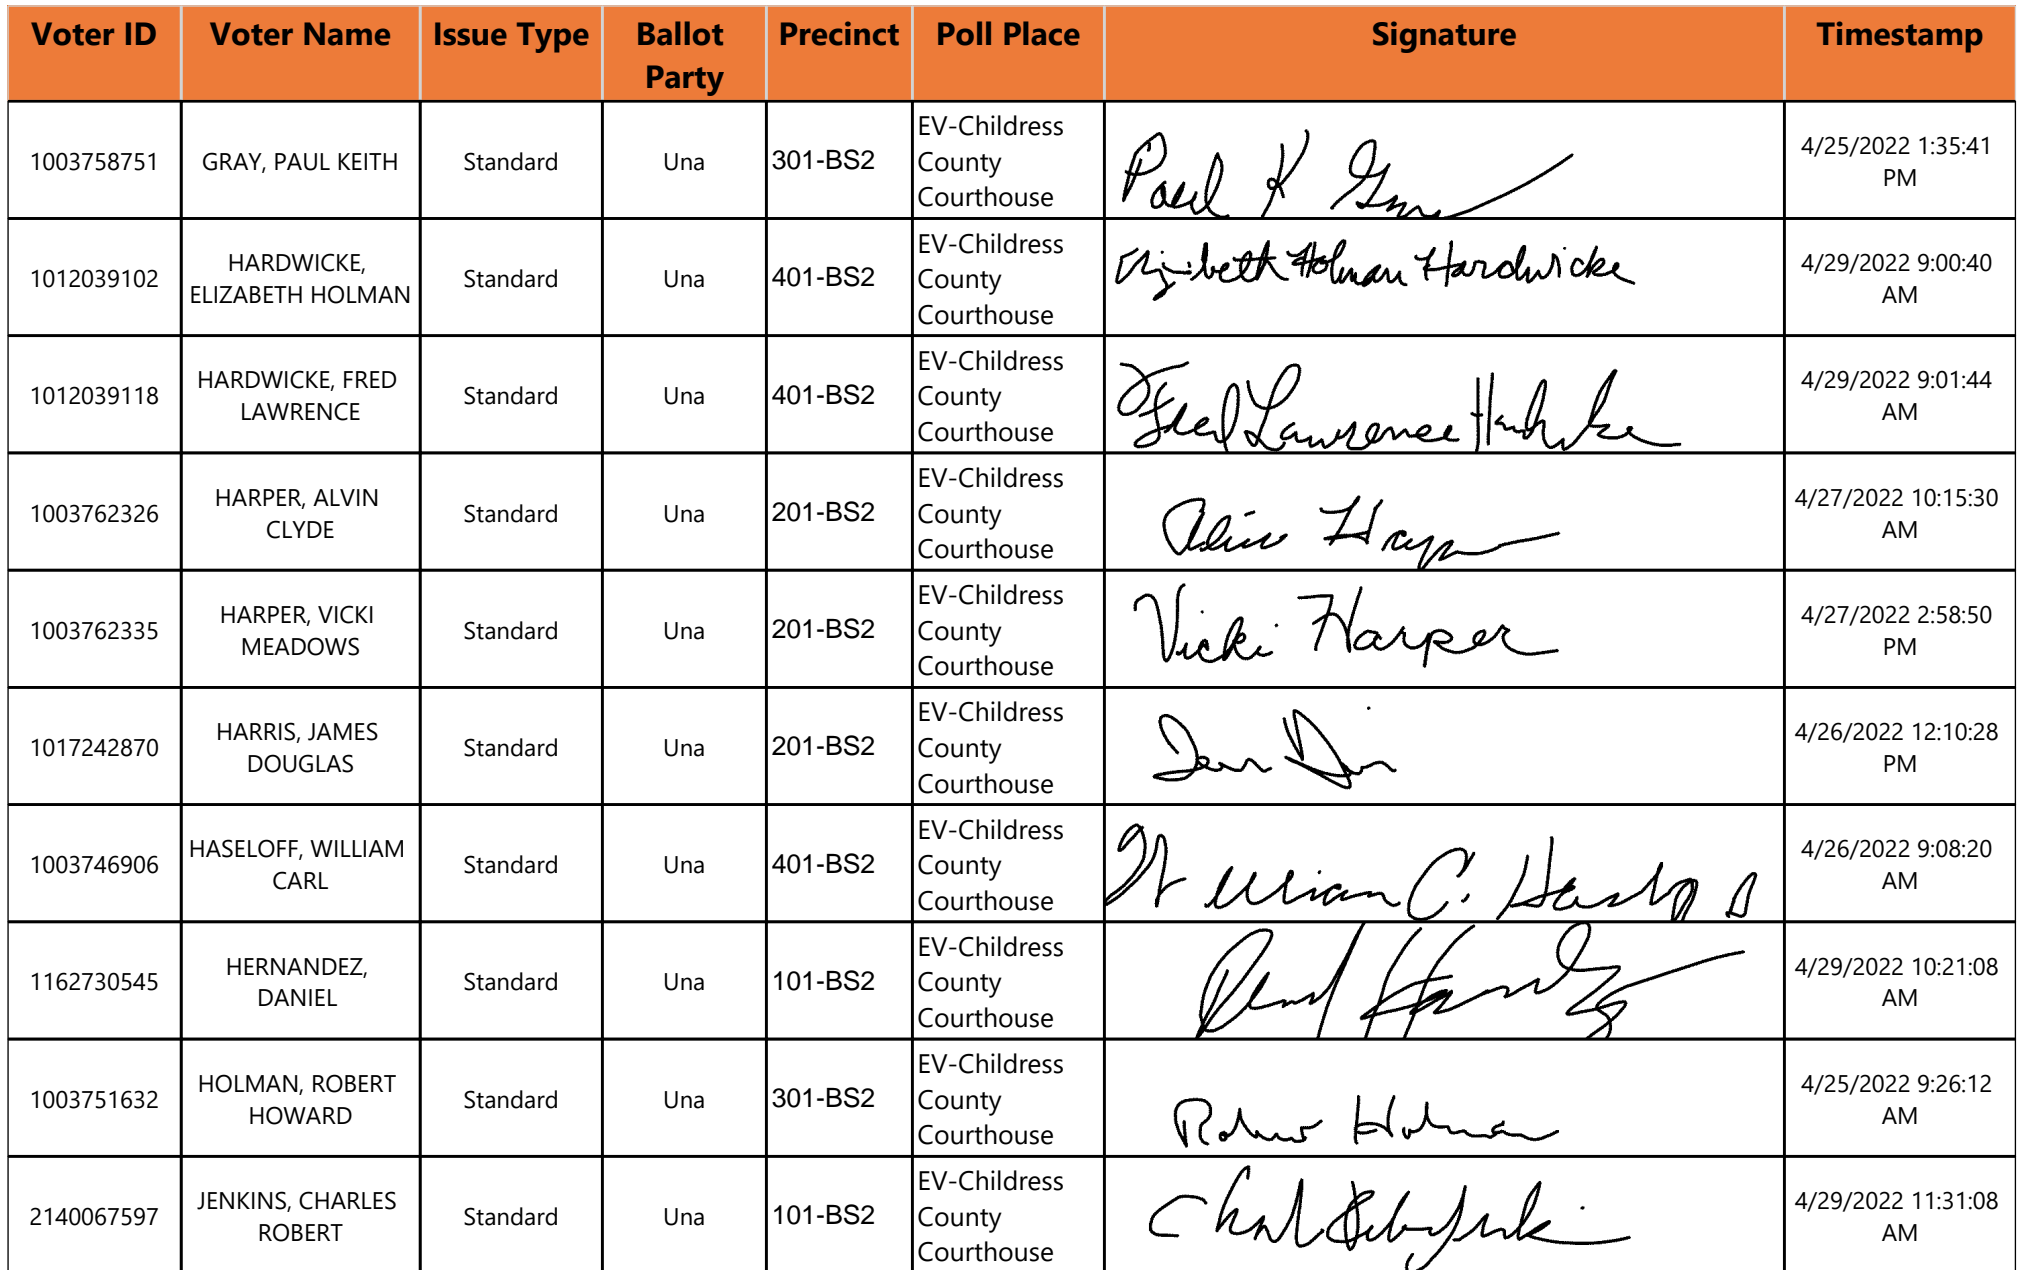 Voter ID Voter Name Issue Type Ballot Party Precinct Poll Place Signature Timestamp
1003758751 GRAY, PAUL KEITH Standard Una 301-BS2 EV-Childress County Courthouse Paul K Gray 4/25/2022 1:35:41 PM
1012039102 HARDWICKE, ELIZABETH HOLMAN Standard Una 401-BS2 EV-Childress County Courthouse Elizabeth Holman Hardwicke 4/29/2022 9:00:40 AM
1012039118 HARDWICKE, FRED LAWRENCE Standard Una 401-BS2 EV-Childress County Courthouse Fred Lawrence Hardwicke 4/29/2022 9:01:44 AM
1003762326 HARPER, ALVIN CLYDE Standard Una 201-BS2 EV-Childress County Courthouse Alvin Harper 4/27/2022 10:15:30 AM
1003762335 HARPER, VICKI MEADOWS Standard Una 201-BS2 EV-Childress County Courthouse Vicki Harper 4/27/2022 2:58:50 PM
1017242870 HARRIS, JAMES DOUGLAS Standard Una 201-BS2 EV-Childress County Courthouse 4/26/2022 12:10:28 PM
1003746906 HASELOFF, WILLIAM CARL Standard Una 401-BS2 EV-Childress County Courthouse William C. Haseloff 4/26/2022 9:08:20 AM
1162730545 HERNANDEZ, DANIEL Standard Una 101-BS2 EV-Childress County Courthouse 4/29/2022 10:21:08 AM
1003751632 HOLMAN, ROBERT HOWARD Standard Una 301-BS2 EV-Childress County Courthouse Robert Holman 4/25/2022 9:26:12 AM
2140067597 JENKINS, CHARLES ROBERT Standard Una 101-BS2 EV-Childress County Courthouse 4/29/2022 11:31:08 AM